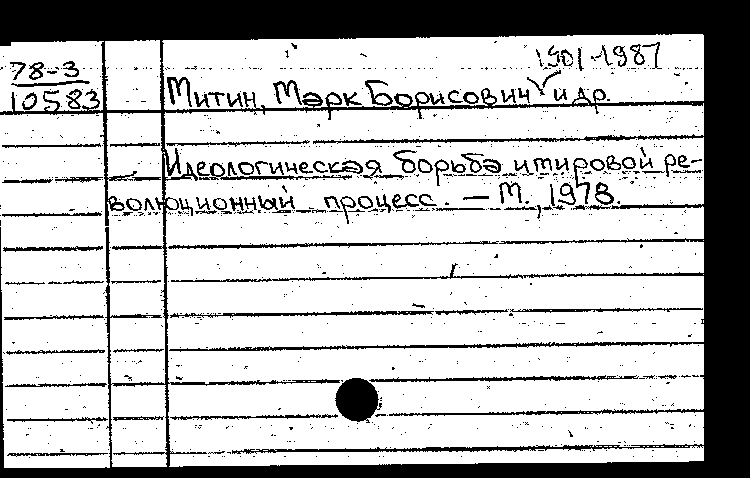 1901-1987
78-3
10583
Митин, Марк Борисович и др.
Идеологическая борьба и мировой ре-
волюционный процесс. — М., 1978.